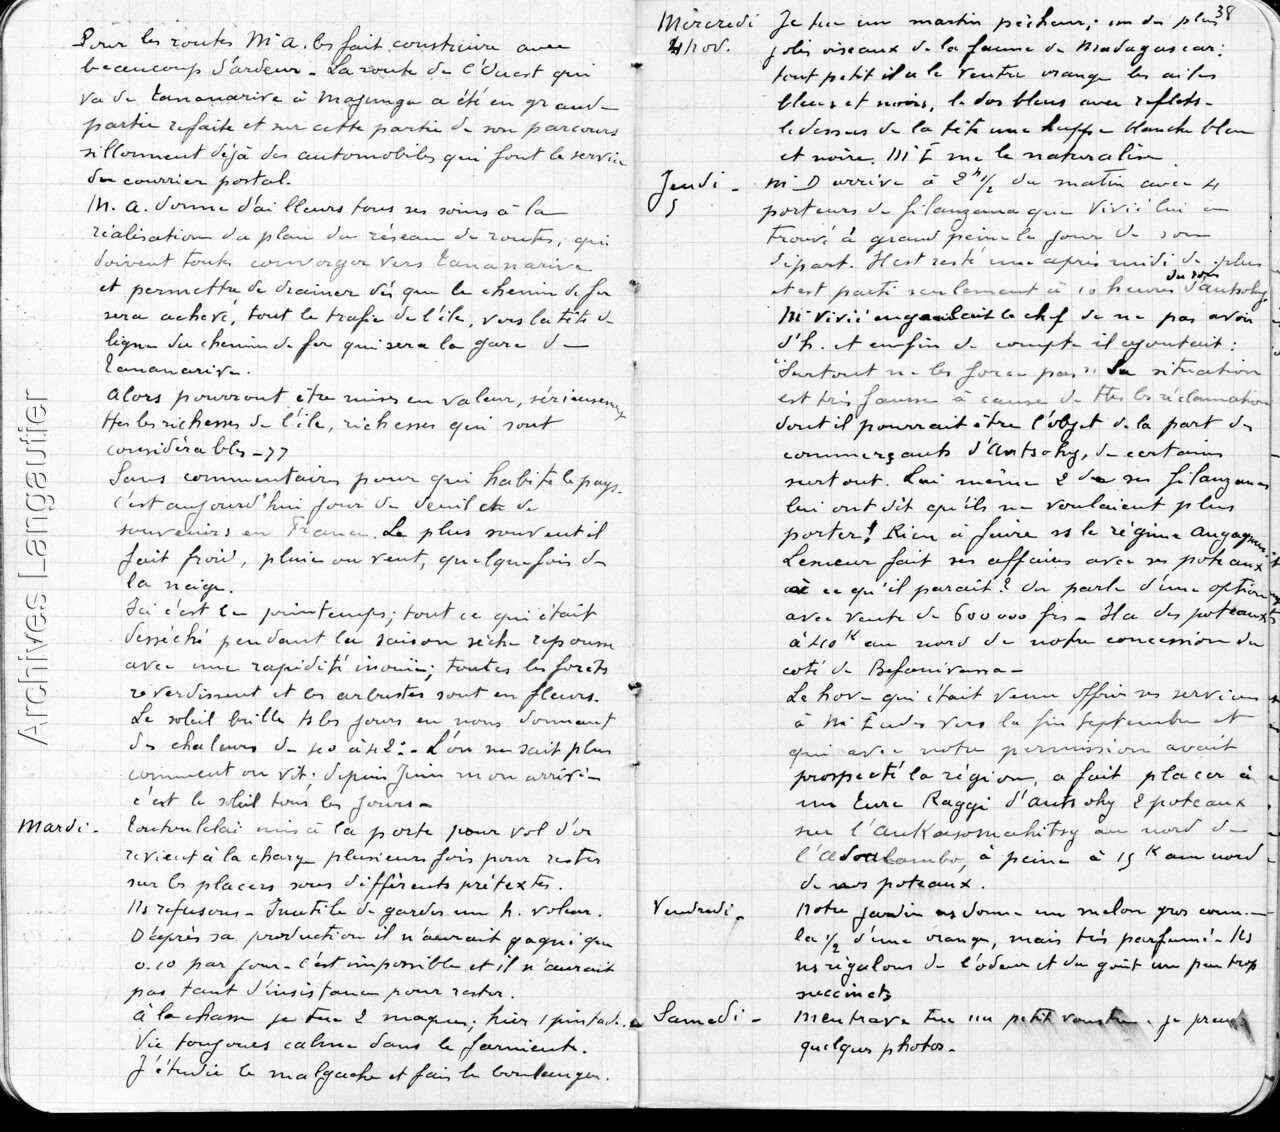 Pour les routes M. A. les fait construire avec
beaucoup d'ardeur - La route de l'Ouest qui
va de Tananarive à Majunga a été en grande
partie refaite et sur cette partie de son parcours
sillonnent déjà des automobiles qui font le service
du courrier postal.
M. A. donne d'ailleurs tous ses soins à la
réalisation du plan du réseau de routes, qui
doivent toutes converger vers Tananarive
et permettre de drainer dès que le chemin de fer
sera achevé, tout le trafic de l'île, vers la tête de
ligne du chemin de fer qui sera la gare de
Tananarive.
Alors pourront être mises en valeur, sérieusement
ttes les richesses de l'île, richesses qui sont
considérables - "
Sans commentaires pour qui habite le pays.
C'est aujourd'hui jour de deuil et de
souvenirs en France. Le plus souvent il
fait froid, pluie ou vent, quelquefois de
la neige.
Ici c'est le printemps; tout ce qui était
desséché pendant la saison sèche repousse
avec une rapidité inouïe; toutes les forêts
reverdissent et les arbustes sont en fleurs.
Le soleil brille ts les jours en nous donnant
des chaleurs de 40 à 42° - L'on ne sait plus
comment on vit; depuis Juin mon arrivée
c'est le soleil tous les jours -
Mardi - Toutoulelai mis à la porte pour vol d'or
revient à la charge plusieurs fois pour rester
sur les placers sous différents prétextes.
Ns refusons - Inutile de garder un h. voleur.
D'après sa production il n'aurait gagné que
0.10 par jour - c'est impossible et il n'aurait
pas tant d'insistance pour rester.
à la chasse je tue 2 maques; hier 1 pintade.
Vie toujours calme dans le farniente.
J'étudie le malgache et fais le boulanger.
38
Mercredi Je tue un martin pêcheur; un des plus
4 Nov. jolis oiseaux de la faune de Madagascar;
tout petit il a le ventre orange les ailes
bleues et noires, le dos bleus avec reflets -
le dessus de la tête une huppe blanche bleu
et noire. M E me le naturalise.
Jeudi - M. D arrive à 2 h 1/2 du matin avec 4
5 porteurs de filanzana que Vivié lui a
trouvé à grand peine le jour de son
départ. Il est resté une après midi de plus
et est parti seulement à 10 heures du soir d'Antsohy
Mr Vivié engueulait le chef de ne pas avoir
d'h. et en fin de compte il ajoutait:
"Surtout ne les force pas". Sa situation
est très fausse à cause de ttes les réclamations
dont il pourrait être l'objet de la part des
commerçants d'Antsohy, de certains
surtout. Lui même 2 de ses filanzanes
lui ont dit qu'ils ne voulaient plus
porter! Rien à faire ss le régime Augagneur.
Lesueur fait ses affaires avec ses poteaux
à ce qu'il parait? On parle d'une option
avec vente de 600 000 frs - Il a des poteaux
à 40 K au nord de notre concession du
coté de Befonivassa -
Le hova qui était venu offrir ses services
à Mr Eudes vers la fin septembre et
qui avec notre permission avait
prospecté la région, a fait placer à
un Eure Raggi d'Antsohy 2 poteaux
sur l'Ankasomahitsy au nord de
l'Adoulambo, à peine à 15 K au nord
de nos poteaux.
Vendredi - Notre jardin ns donne un melon gros comme
la 1/2 d'une orange, mais très parfumé - Ns
ns régalons de l'odeur et du goût un peu trop
succincts
Samedi - Mentrava tue un petit . je prends
quelques photos -
Archives Langautier